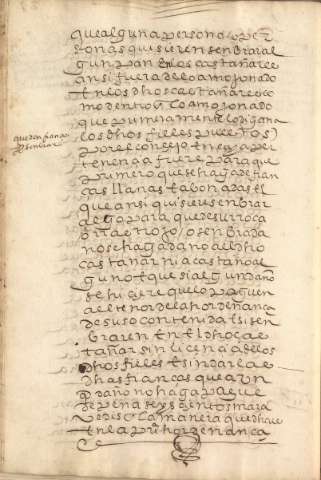 que alguna persona o per
sonas quisieren senbrar al
gun pan en los castañares
ansi fuera de lo amojonado
en los dhos castañares co
mo dentro en lo amojonado
que primeramente lo digan a
los dhos fieles puestos
por el consejo en cuya per
tenencia fuere para que
primero que se haga de fian
ças llanas e abonadas el
que ansi quisiere senbrar
que dan fianças
senbrar
o rrojo o senbrada
no se haga daño al dho
castañar ni a castaño al
guno e que si algun daño
se hiciere que lo paguen
al tenor de la hordenança
de suso contenida e si sen
braren en el dho cas
tañar sin licencia de los
dhos fieles e sin dar la
dhas fianças que aun
daño no haga pague
de pena seyscientos mara
vedis la manera que dho es
en la pri hordenança